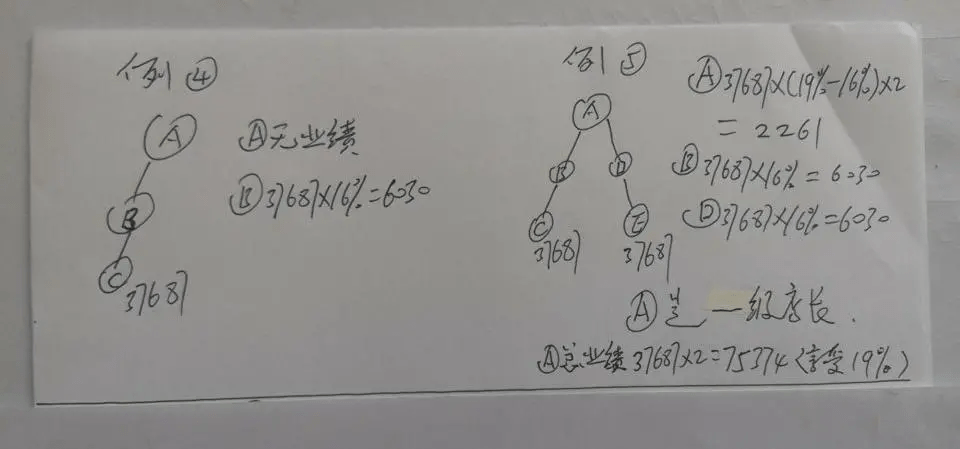 例④
A
B
C
37687
Ⓐ无业绩
Ⓑ37687×16%=6030
例⑤
A
B
D
C
E
37687
37687
Ⓐ37687×(19%-16%)×2
=2261
Ⓑ37687×16%=6030
Ⓓ37687×16%=6030
Ⓐ是一级店长.
Ⓐ总业绩37687×2=75374(享受19%)